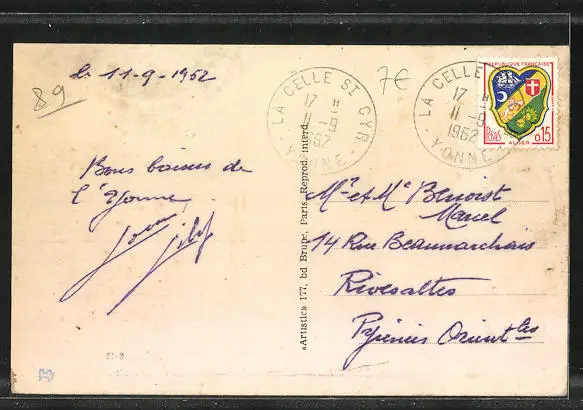 le 11-9-1962
89
7€
LA CELLE ST CYR
17 H
11 -9
1962
YONNE
LA CELLE
17 H
11 -9
1962
YONNE
REPUBLIQUE FRANÇAISE
POSTES
0,15
ALGER
Bons baisers de
l'Yonne
«Artistic» 177, bd Brune, Paris Reprod. interd.
Mr et Me Benoist
Marcel
14 Rue Beaumarchais
Rivesaltes
Pyrénées Orientles